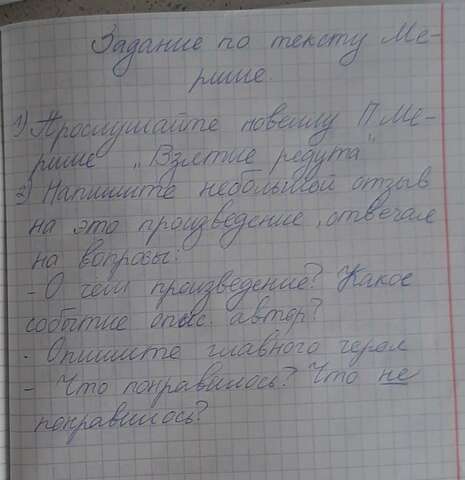 Задание по тексту Ме-
риме.
1) Прослушайте новеллу П. Ме-
риме „Взятие редута"
2) Напишите небольшой отзыв
на это произведение, отвечая
на вопросы:
- О чём произведение? Какое
событие опис. автор?
- Опишите главного героя
- Что понравилось? Что не
понравилось?